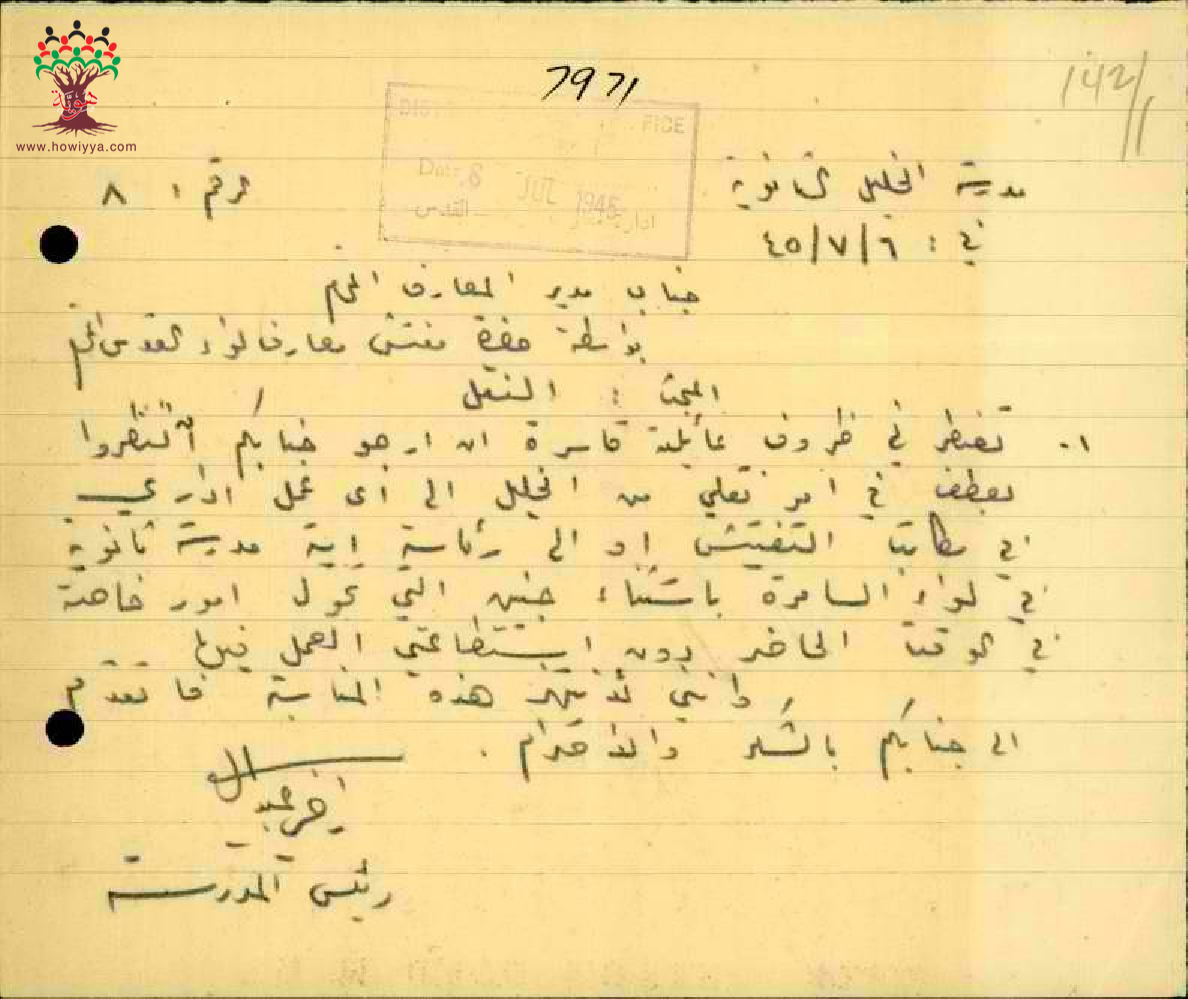 7971
142/1
هوية
www.howiyya.com
DIST FICE
Date 8 JUL 1945
القدس
مدرسة الخليل الثانوية
الرقم : ٨
في : ٦/٧/٤٥
جناب مدير المعارف المحترم
بواسطة حضرة مفتش معارف لواء القدس المحترم
المبحث : النقل
١- تضطرني ظروف عائلية قاسرة ان ارجو جنابكم ان تنظروا
بعطف في امر نقلي من الخليل الى أي عمل اداري
في مكاتب التفتيش او الى رئاسة اية مدرسة ثانوية
في لواء السامرة باستثناء جنين التي تحول امور خاصة
في الوقت الحاضر دون استطاعتي العمل فيها
وانني لأنتهز هذه المناسبة فأتقدم
الى جنابكم بالشكر والاحترام .
رئيس المدرسة